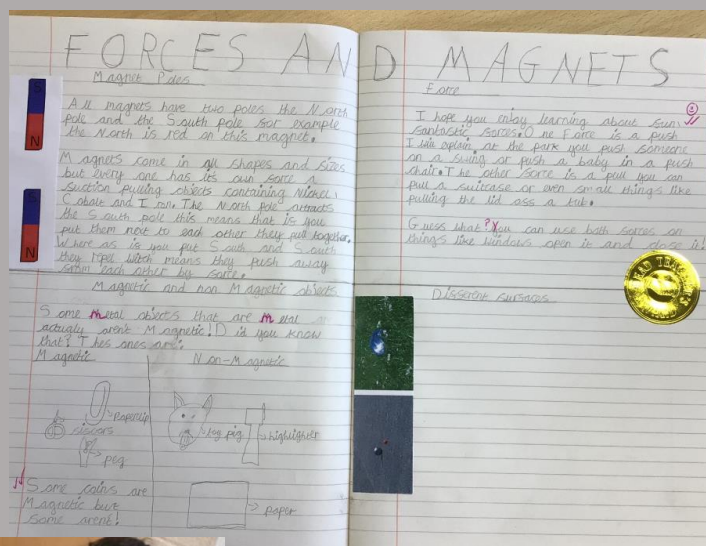 FORCES AND MAGNETS
Magnet Poles
S
N
S
N
All magnets have two poles the North
pole and the South pole for example
the North is red on this magnet.
Magnets come in all shapes and sizes
but every one has its own force a
suction pulling objects containing Nickel,
Cobalt and Iron. The North pole attracts
the South pole this means that if you
put them next to each other they pull together.
Where as if you put South and South
they repel witch means they push away
from each other by force.
Magnetic and non Magnetic objects
Some metal objects that are metal
actually aren't Magnetic! Did you know
that? Thes ones are:
Magnetic
Non-Magnetic
Paperclip
sissors
peg
toy pig
highlighter
paper
Some coins are
Magnetic but
some arent!
Force
I hope you enjoy learning about fun,
fantastic forces. One Force is a push
I will explain, at the park you push someone
on a swing or push a baby in a push
chair. The other force is a pull you can
pull a suitcase or even small things like
pulling the lid off a tub.
Guess what? You can use both forces on
things like windows open it and close it!
HEAD TEACHER'S
Different surfaces